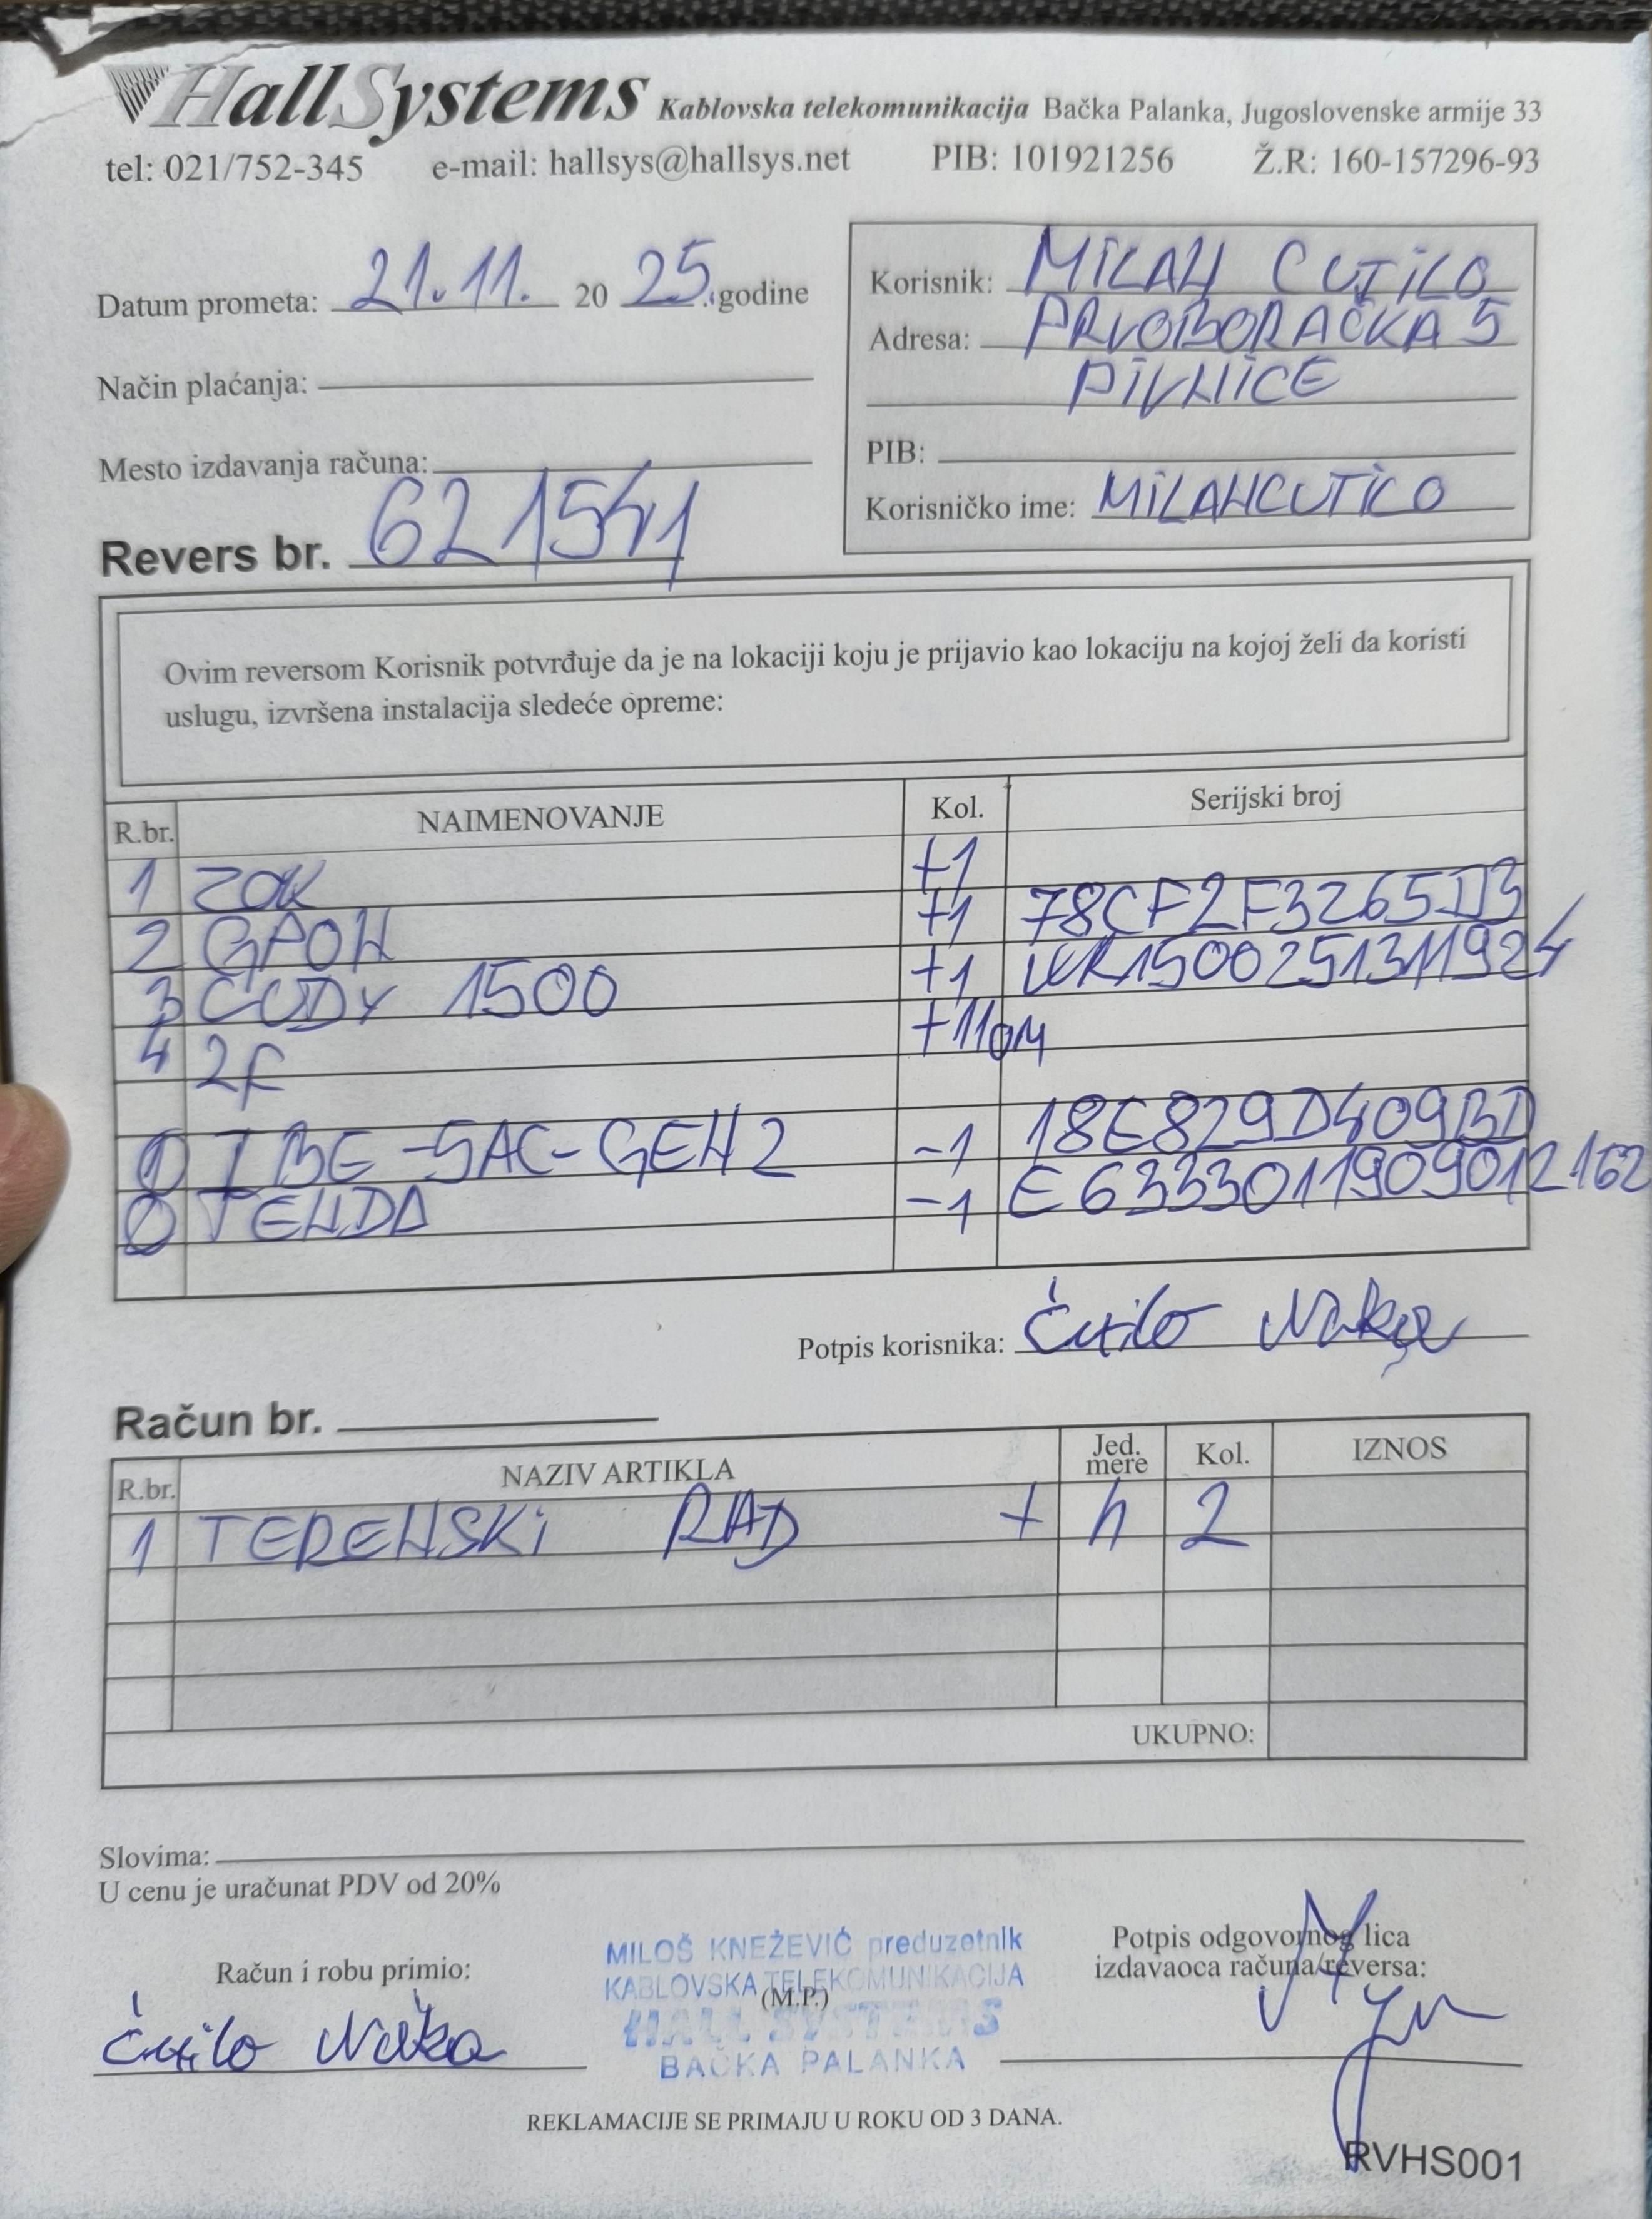 HallSystems Kablovska telekomunikacija Bačka Palanka, Jugoslovenske armije 33
tel: 021/752-345 e-mail: hallsys@hallsys.net PIB: 101921256 Ž.R: 160-157296-93
Datum prometa: 21.11. 20 25. godine
Način plaćanja:
Mesto izdavanja računa:
Revers br. 621541
Korisnik: MILAN CUTILO
Adresa: PRVOBORAČKA 5
PIVNICE
PIB:
Korisničko ime: MILANCUTILO
Ovim reversom Korisnik potvrđuje da je na lokaciji koju je prijavio kao lokaciju na kojoj želi da koristi
uslugu, izvršena instalacija sledeće opreme:
R.br. NAIMENOVANJE Kol. Serijski broj
1 ZOK +1
2 GPON +1 78CF2F3265D3
3 CUDY 1500 +1 WR1500251311924
4 2F +110M
0 LBE-5AC-GEN2 -1 18E829D409BD
0 TENDA -1 E6333011909012162
Potpis korisnika: Ćutilo
Račun br.
R.br. NAZIV ARTIKLA Jed. mere Kol. IZNOS
1 TERENSKI RAD + h 2
UKUPNO:
Slovima:
U cenu je uračunat PDV od 20%
Račun i robu primio:
Ćutilo
MILOŠ KNEŽEVIĆ preduzetnik
KABLOVSKA TELEKOMUNIKACIJA
(M.P.)
HALL SYSTEMS
BAČKA PALANKA
Potpis odgovornog lica
izdavaoca računa/reversa:
REKLAMACIJE SE PRIMAJU U ROKU OD 3 DANA.
RVHS001